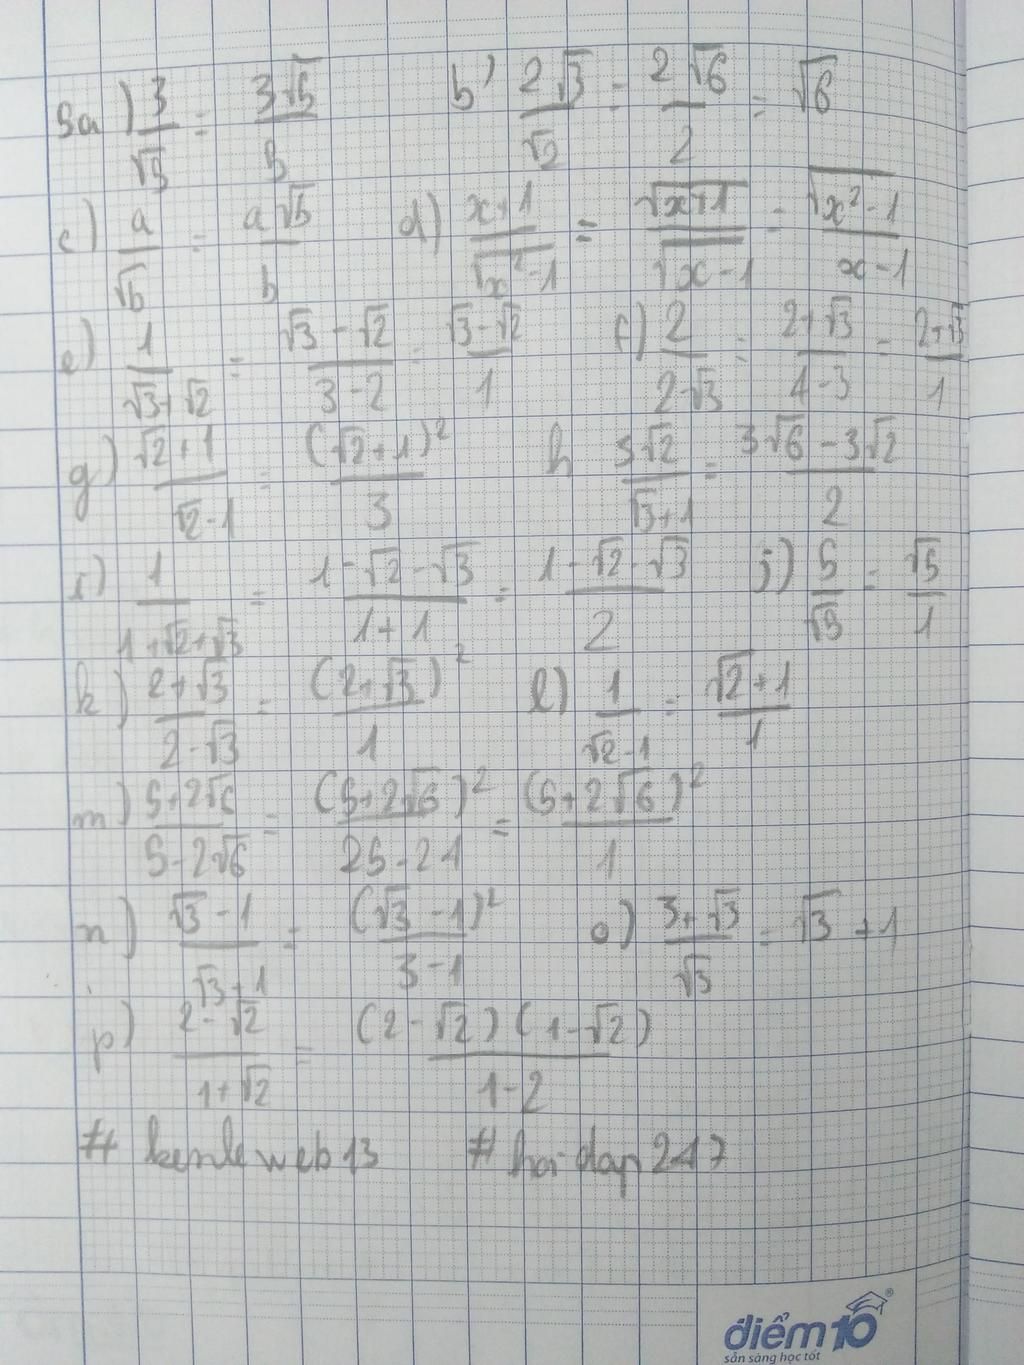 5a) 3/√5 = 3√5/5 b) 2√3/√2 = 2√6/2 = √6
c) a/√b = a√b/b d) x+1/√x²-1 = √x+1/√x-1 = √x²-1/x-1
e) 1/√3+√2 = √3-√2/3-2 = √3-√2/1 f) 2/2-√3 = 2+√3/4-3 = 2+√3/1
g) √2+1/√2-1 = (√2+1)²/3 h 3√2/√3+1 = 3√6-3√2/2
i) 1/1+√2+√3 = 1-√2-√3/1+1 = 1-√2-√3/2 j) 5/√5 = √5/1
k) 2+√3/2-√3 = (2+√3)²/1 l) 1/√2-1 = √2+1/1
m) 5+2√6/5-2√6 = (5+2√6)²/25-24 = (5+2√6)²/1
n) √3-1/√3+1 = (√3-1)²/3-1 o) 3+√3/√3 = √3+1
p) 2-√2/1+√2 = (2-√2)(1-√2)/1-2
# kenleweb13 # hoidap247
điểm10®
sẵn sàng học tốt